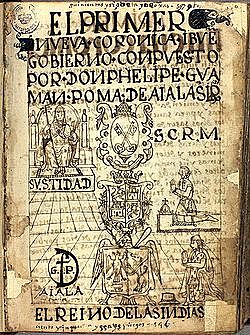 EL PRIMER
NVEVA·CORONICA·IBVE
GOBIERNO·CONPVESTO
POR·DON PHELIPE·GVA
MAN·POMA·DE AIALA
S.C.R.M.
SV S.TIDAD
G.P.
AIALA
EL REINO DE LAS INDIAS